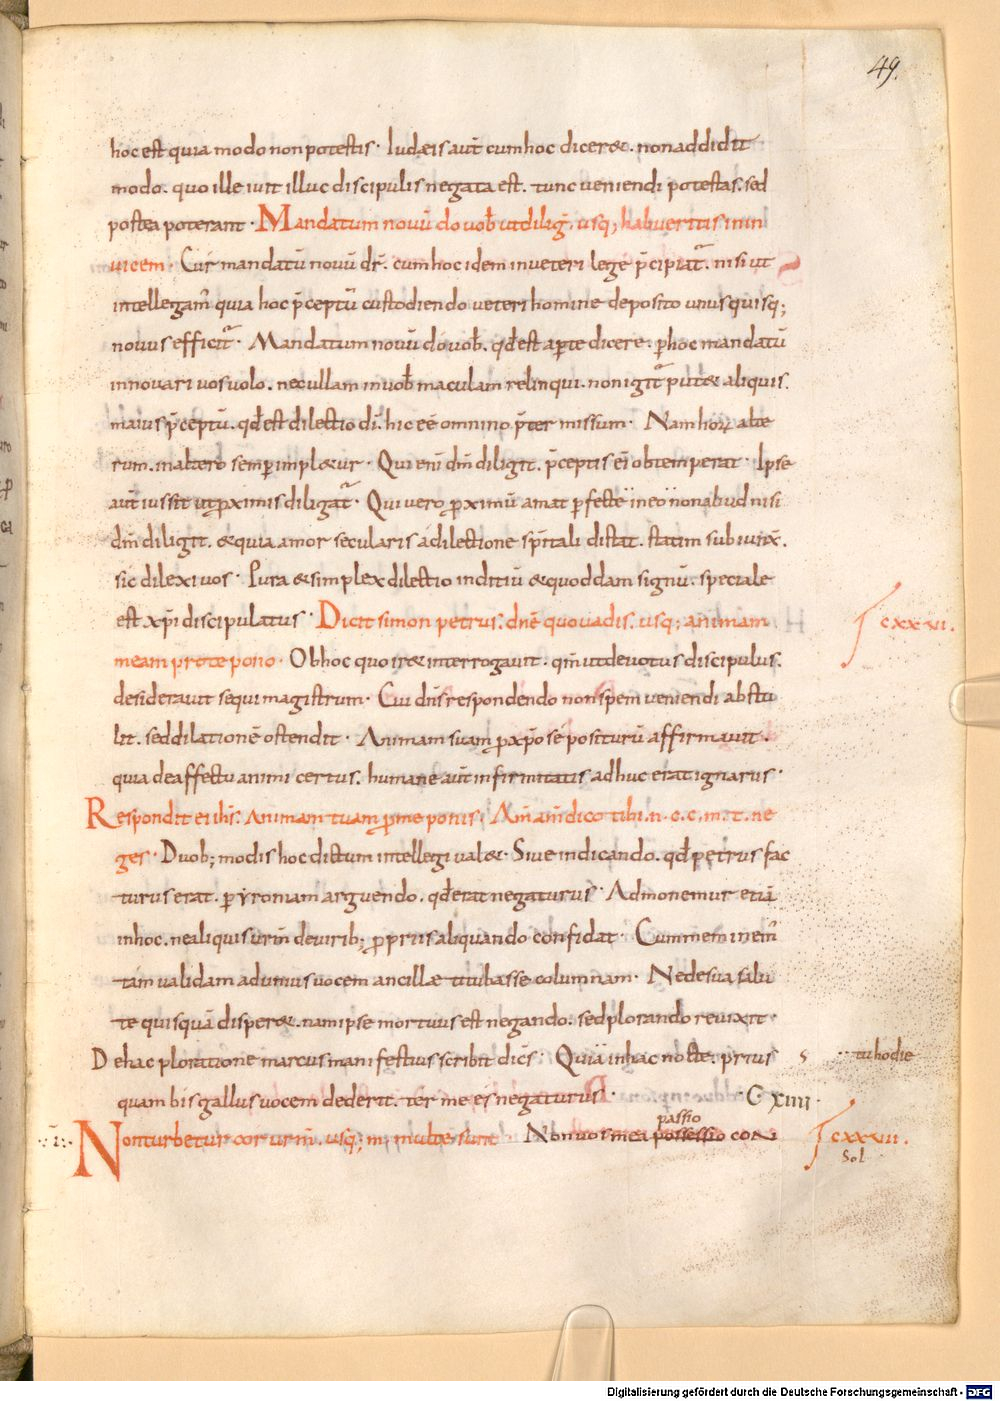 49.
hoc est quia modo non potestis · Iudæis aut̄ cum hoc diceret · non addidit
modo · quo ille iuit illuc discipulis negata est · tunc ueniendi potestas · sed
postea poterant · Mandatum nouū do uob̄ ut dilig̅ · usq; habueritis in in
uicem · Cur mandatū nouū dr̄ · cum hoc idem in ueteri lege p̄cipiat̄ · nisi ut
intellegam̄ quia hoc p̄ceptū custodiendo ueteri homine deposito unusquisq;
nouus efficit̄ · Mandatum nouū do uob̄ · qd̄ est aperte dicere · p hoc mandatū
innouari uos uolo · nec ullam in uob̄ maculam relinqui · non igit̄ putet aliquis
maius p̄ceptū · qd̄ est dilectio dī · hic eē omnino p̄ter missum · Nam horū alte
rum · in altero semp impletur · Qui enī dm̄ diligit · p̄ceptis ei obtemperat · Ipse
aut̄ iussit ut pximis diligat̄ · Qui uero pximū amat pfecte in eo non aliud nisi
dm̄ diligit · & quia amor secularis a dilectione spiritali distat · statim subiunx̄ ·
sic dilexi uos · Pura & simplex dilectio inditiū & quoddam signū · speciale
est xpī discipulatus · Dicit simon petrus · dn̄e quo uadis · usq; animam cxxvi.
meam pro te pono · Ob hoc quo iret interrogauit · qm̄ ut deuotus discipulus
desiderauit sequi magistrum · Cui dn̄s respondendo non spem ueniendi abstu
lit · sed dilationē ostendit · Animam suam p xpo sē positurū affirmauit ·
quia de affectu animi certus · humane aut̄ infirmitatis adhuc erat ignarus ·
Respondit ei ihs̄ · Animam tuam p me ponis · Am̄ am̄ dico tibi · n · c · c · m · t · ne
ges · Duob; modis hoc dictum intellegi ualet · Siue indicando · qd̄ petrus fac
turus erat · p yroniam arguendo · qd̄ erat negaturus · Admonemur etiā
in hoc · ne aliquis urm̄ de uirib; propriis aliquando confidat · Cum meminem̄
tam ualidam ad unius uocem ancillæ titubasse columnam · Ne de sua salu
te quisquā disperet · nam ipse mortuus est negando · sed plorando reuixit ·
De hac ploratione marcus manifestius scribit dicēs · Quia in hac nocte · prius s tu hodie
quam bis gallus uocem dederit · ter me es negaturus · C xiiii ·
passio
·i· Non turbetur cor urm̄ · usq; m̄ multæ sunt · Non uos mea possessio con cxxvii.
Sol
Digitalisierung gefördert durch die Deutsche Forschungsgemeinschaft - DFG